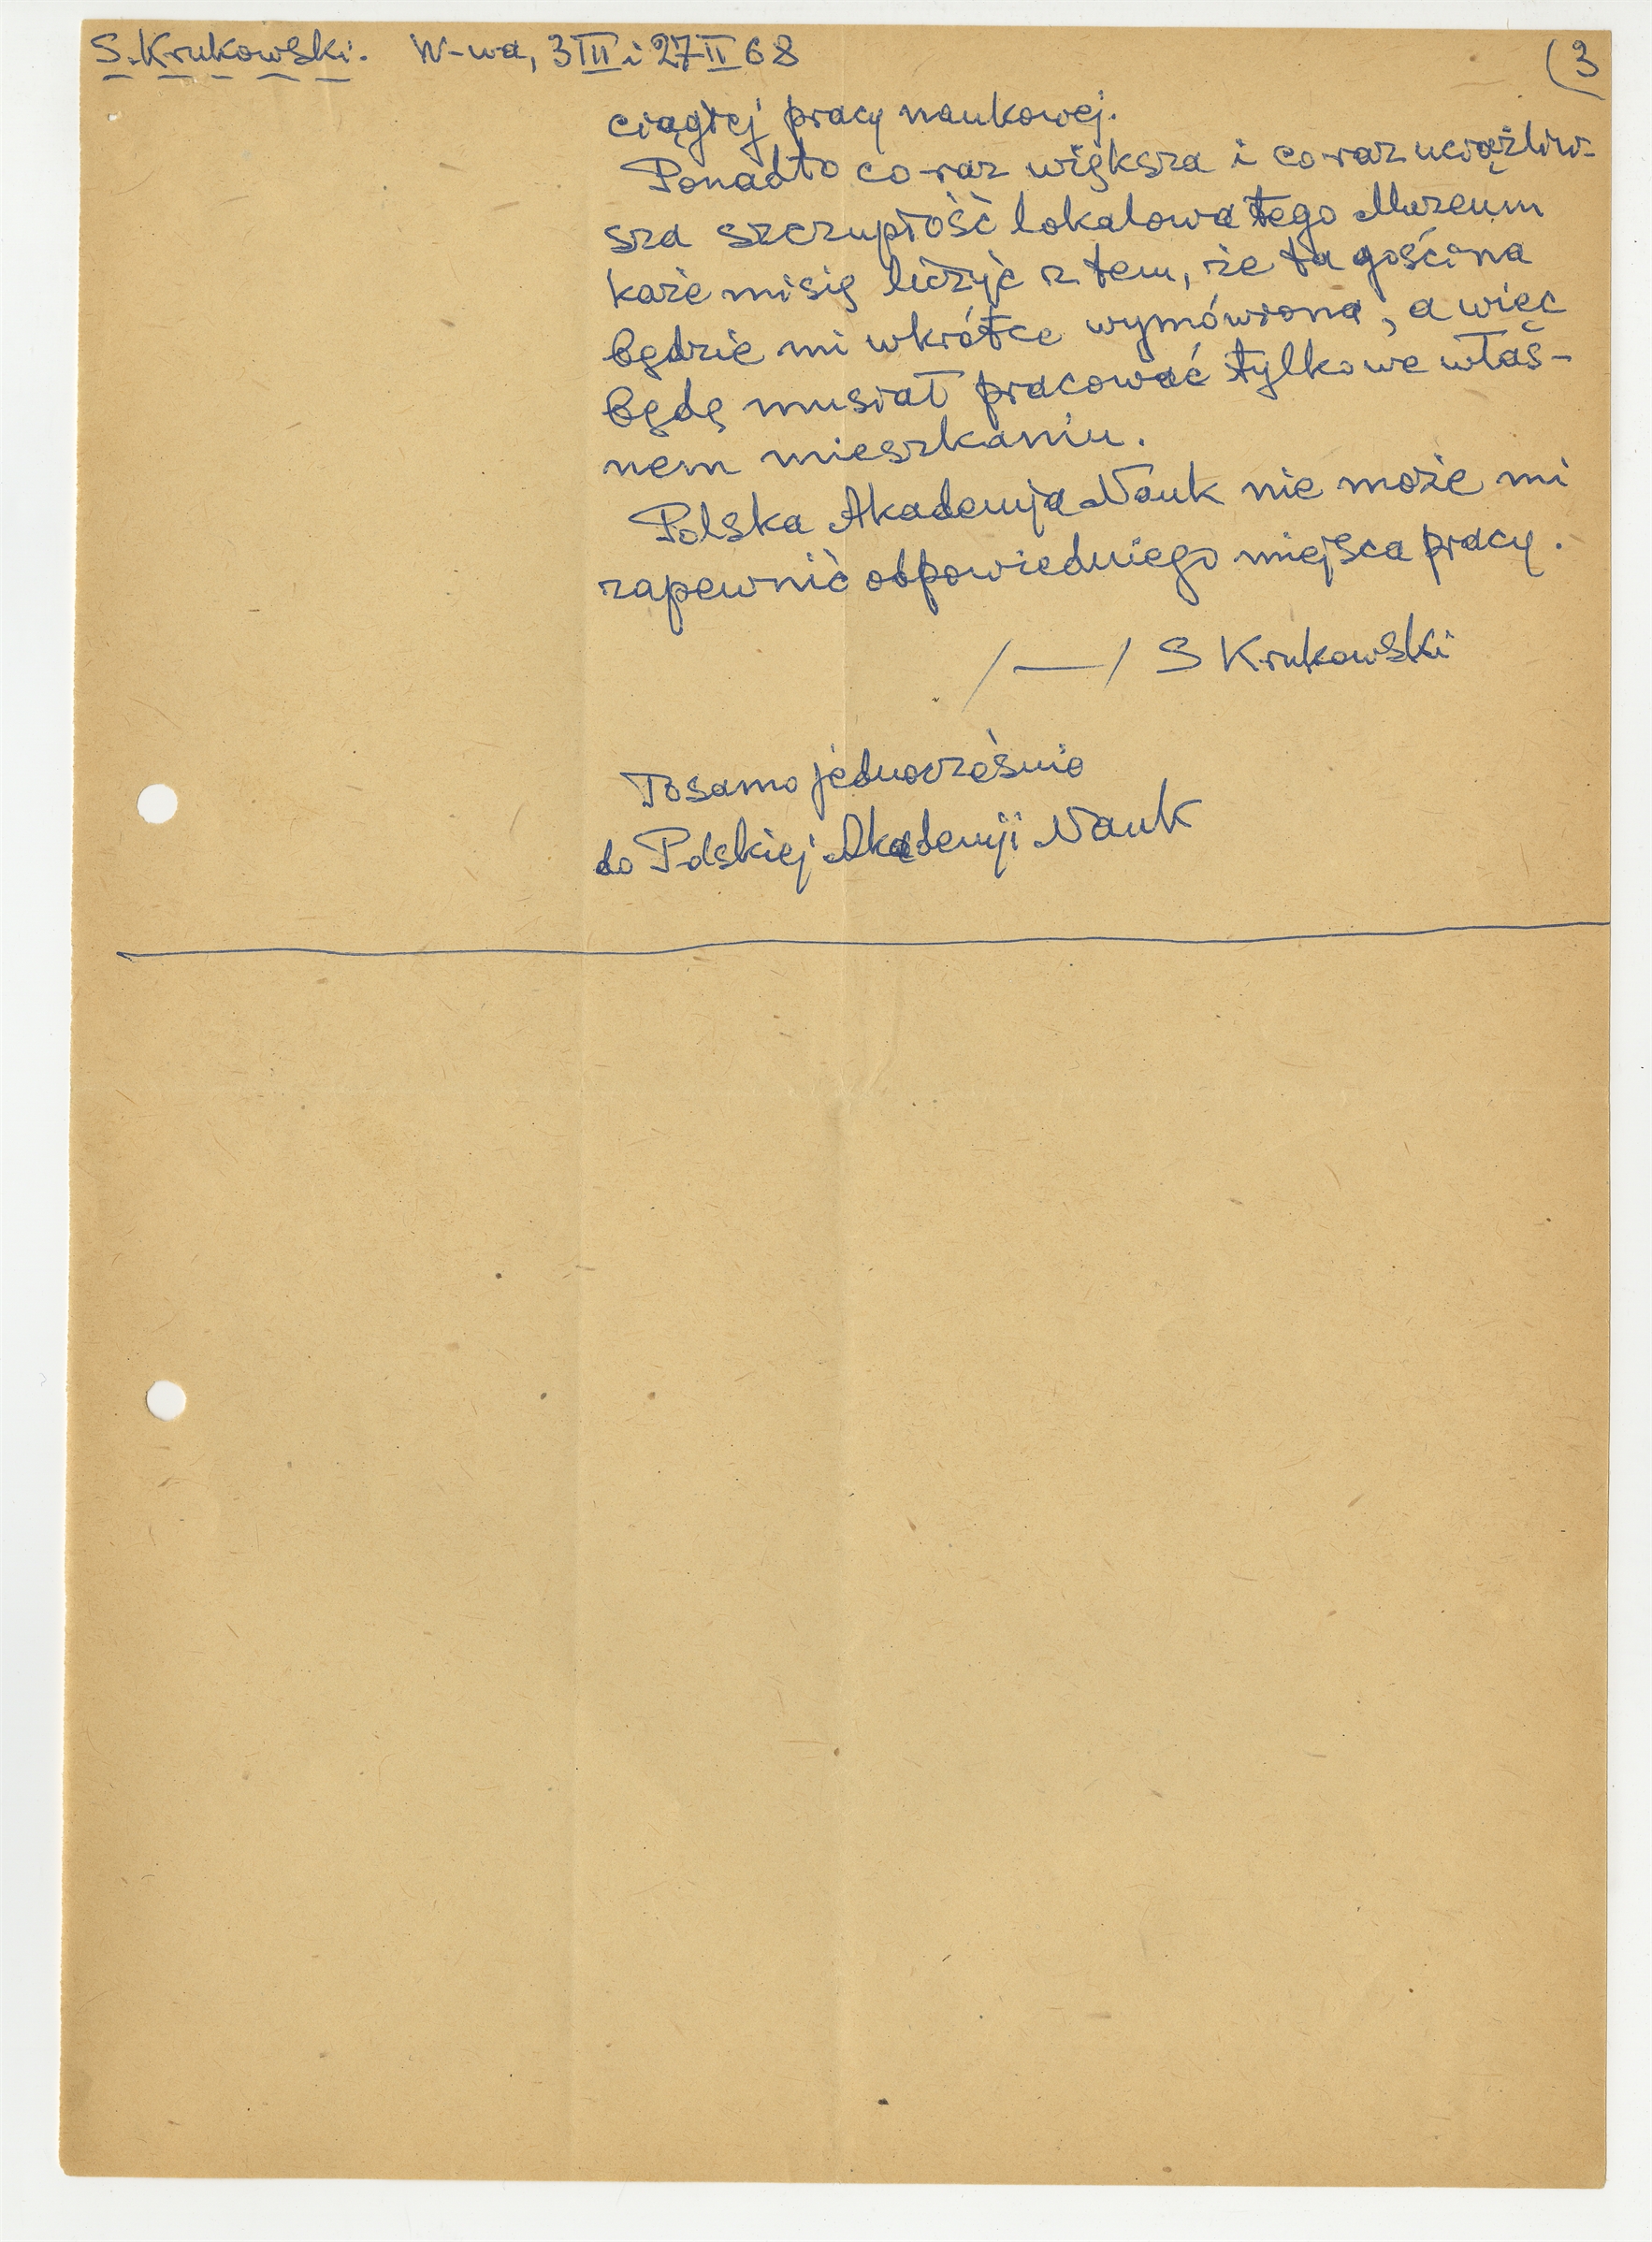 S. Krukowski. W-wa, 3 III i 27 II 68 (3
ciągłej pracy naukowej.
Ponadto co-raz większa i co-raz uciążliw-
sza szczupłość lokalowa tego Muzeum
każe mi się liczyć z tem, że ta gościna
będzie mi wkrótce wymówiona, a więc
będę musiał pracować tylko we włas-
nem mieszkaniu.
Polska Akademja Nauk nie może mi
zapewnić odpowiedniego miejsca pracy.
/—/ S Krukowski
To samo jednocześnie
do Polskiej Akademji Nauk